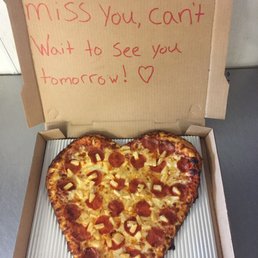 miss you, can't
Wait to see you
tomorrow! ♡